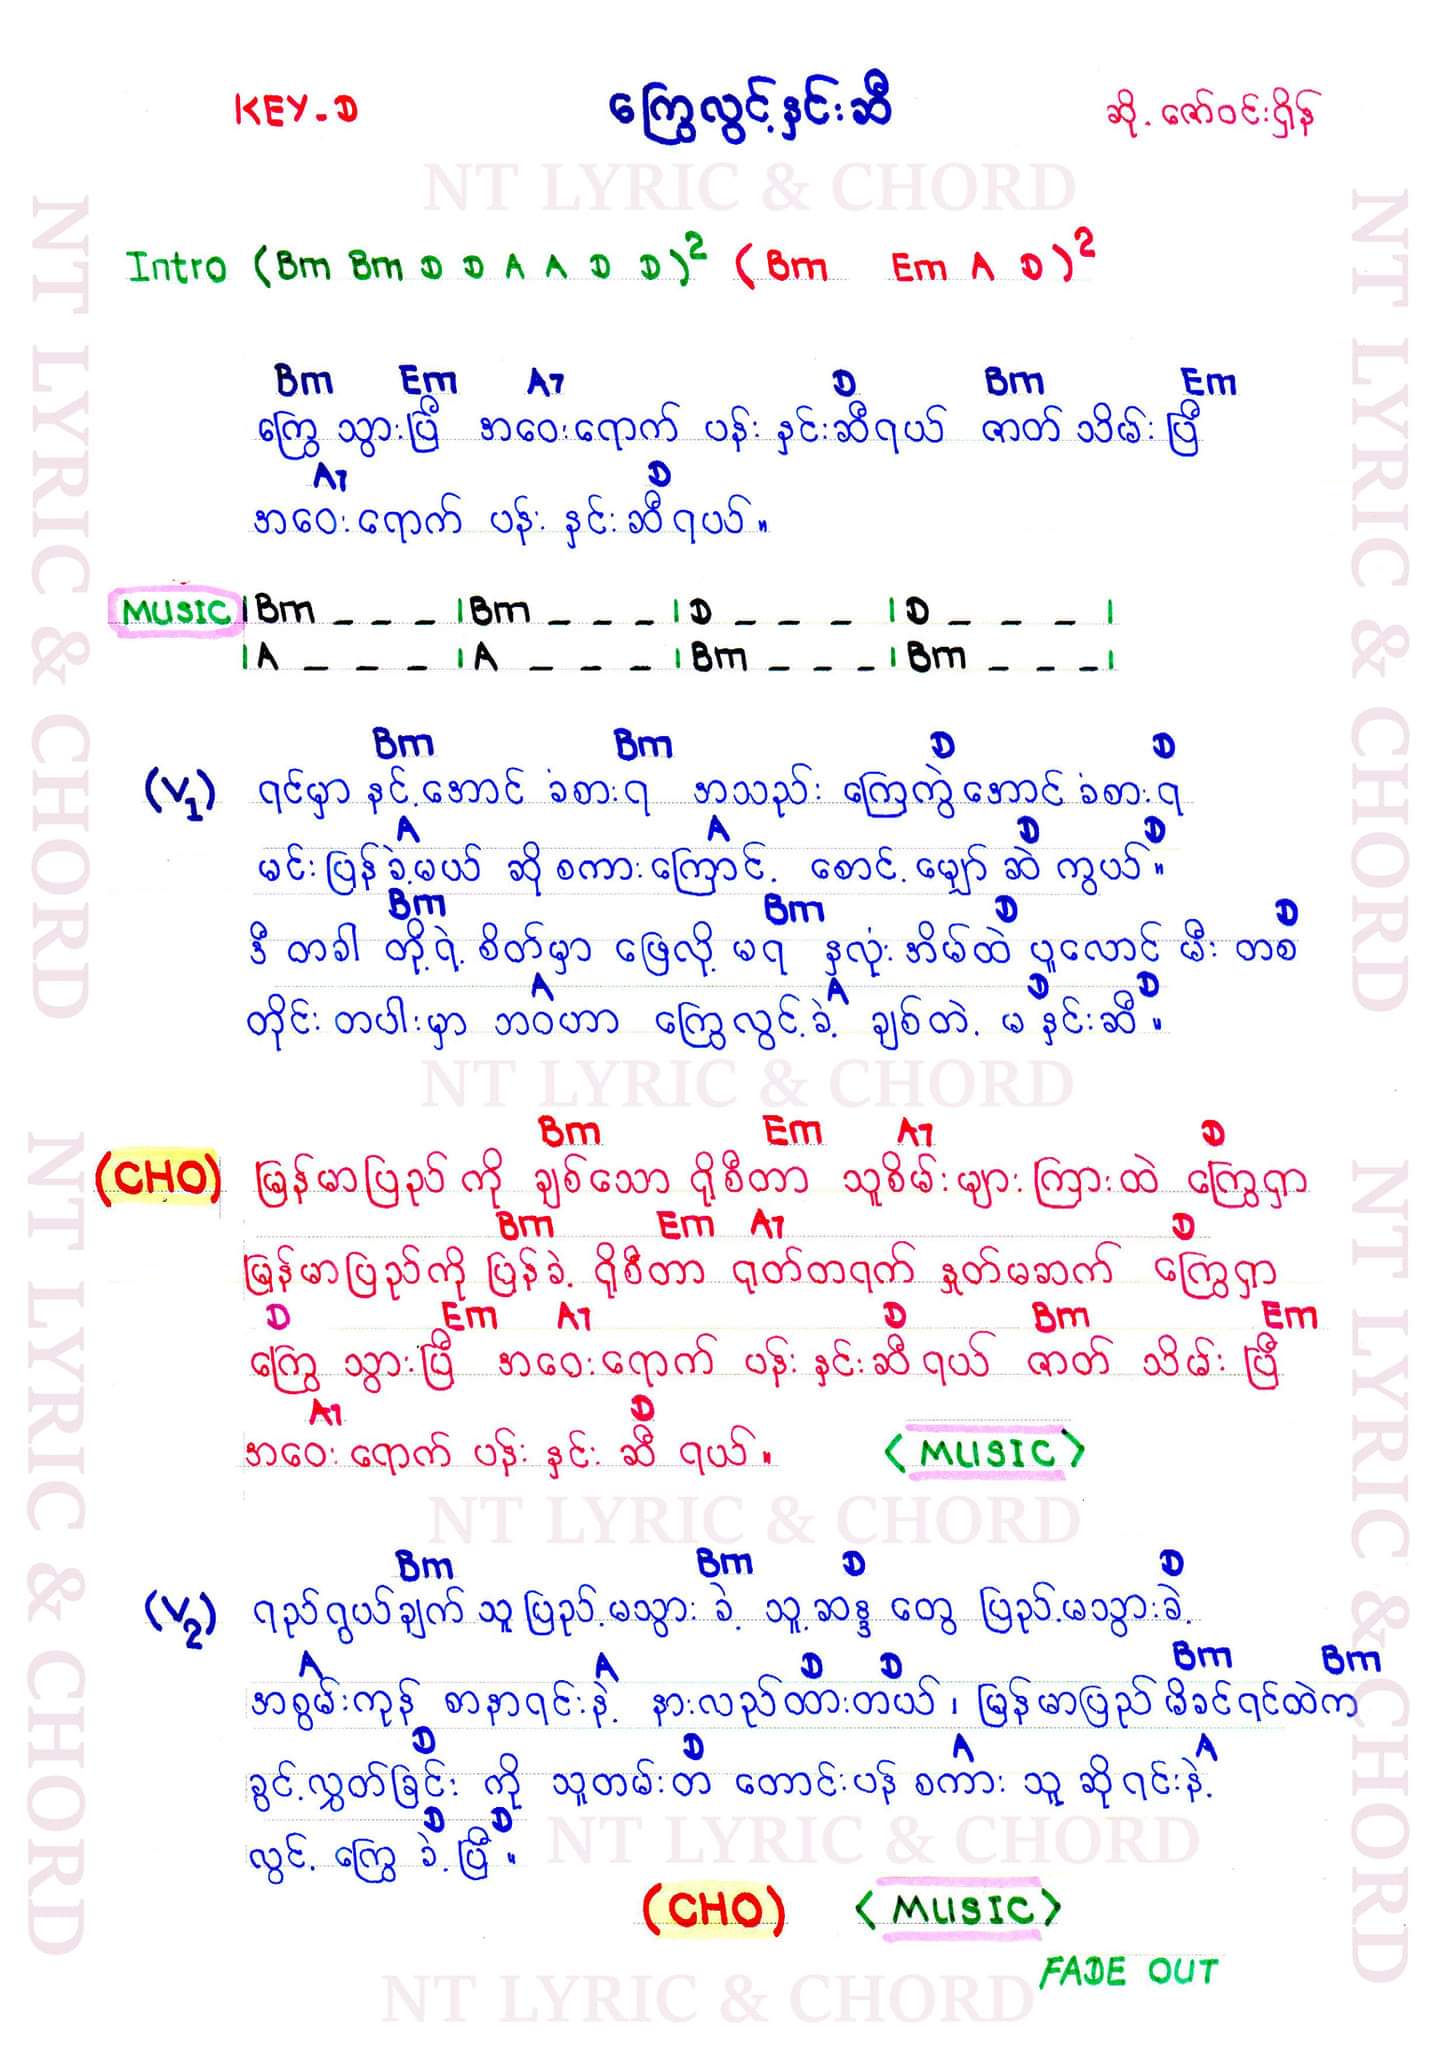 KEY-D ကြွေလွင့်နှင်းဆီ ဆို. ဇော်ဝင်းရှိန်
NT LYRIC & CHORD
Intro (Bm Bm D D A A D D)² (Bm Em A D)²
Bm Em A7 D Bm Em
ကြွေ သွားပြီ အဝေးရောက် ပန်း နှင်းဆီရယ် ဇာတ် သိမ်းပြီ
A7 D
အဝေးရောက် ပန်း နှင်းဆီရယ်။
MUSIC |Bm _ _ _ |Bm _ _ _ |D _ _ _ |D _ _ _ |
|A _ _ _ |A _ _ _ |Bm _ _ _ |Bm _ _ _ |
Bm Bm D D
(V1) ရင်မှာ နင့်အောင် ခံစားရ အသည်း ကြေကွဲအောင် ခံစားရ
A A D D
မင်းပြန်ခဲ့မယ် ဆို စကားကြောင့် စောင့်မျှော် ဆဲ ကွယ်။
Bm Bm D D
ဒီ တခါ တို့ရဲ့ စိတ်မှာ ဖြေလို့ မရ နှလုံး အိမ်ထဲ ပူလောင် မီး တစ
A A D D
တိုင်း တပါးမှာ ဘဝဟာ ကြွေလွင့်ခဲ့ ချစ်တဲ့ မ နှင်းဆီ။
NT LYRIC & CHORD
Bm Em A7 D
(CHO) မြန်မာပြည် ကို ချစ်သော ရိုစီတာ သူစိမ်းများကြားထဲ ကြွေရှာ
Bm Em A7 D
မြန်မာပြည်ကို ပြန်ခဲ့ ရိုစီတာ ရုတ်တရက် နှုတ်မဆက် ကြွေရှာ
D Em A7 D Bm Em
ကြွေ သွားပြီ အဝေးရောက် ပန်း နှင်းဆီရယ် ဇာတ် သိမ်း ပြီ
A7 D
အဝေးရောက် ပန်း နှင်း ဆီ ရယ်။ <MUSIC>
NT LYRIC & CHORD
Bm Bm D D
(V2) ရည်ရွယ်ချက် သူ ပြည့်မသွား ခဲ့ သူ့ဆန္ဒ တွေ ပြည့်မသွားခဲ့
A A D D Bm Bm
အစွမ်းကုန် စာနာရင်းနဲ့ နားလည်ထားတယ်၊ မြန်မာပြည် မိခင်ရင်ထဲက
D D A A
ခွင့်လွှတ်ခြင်း ကို သူတမ်းတ တောင်းပန် စကား သူ ဆိုရင်းနဲ့
D D
လွင့် ကြွေ ခဲ့ပြီ။
NT LYRIC & CHORD
(CHO) <MUSIC>
FADE OUT
NT LYRIC & CHORD
NT LYRIC & CHORD
NT LYRIC & CHORD
NT LYRIC & CHORD
NT LYRIC & CHORD